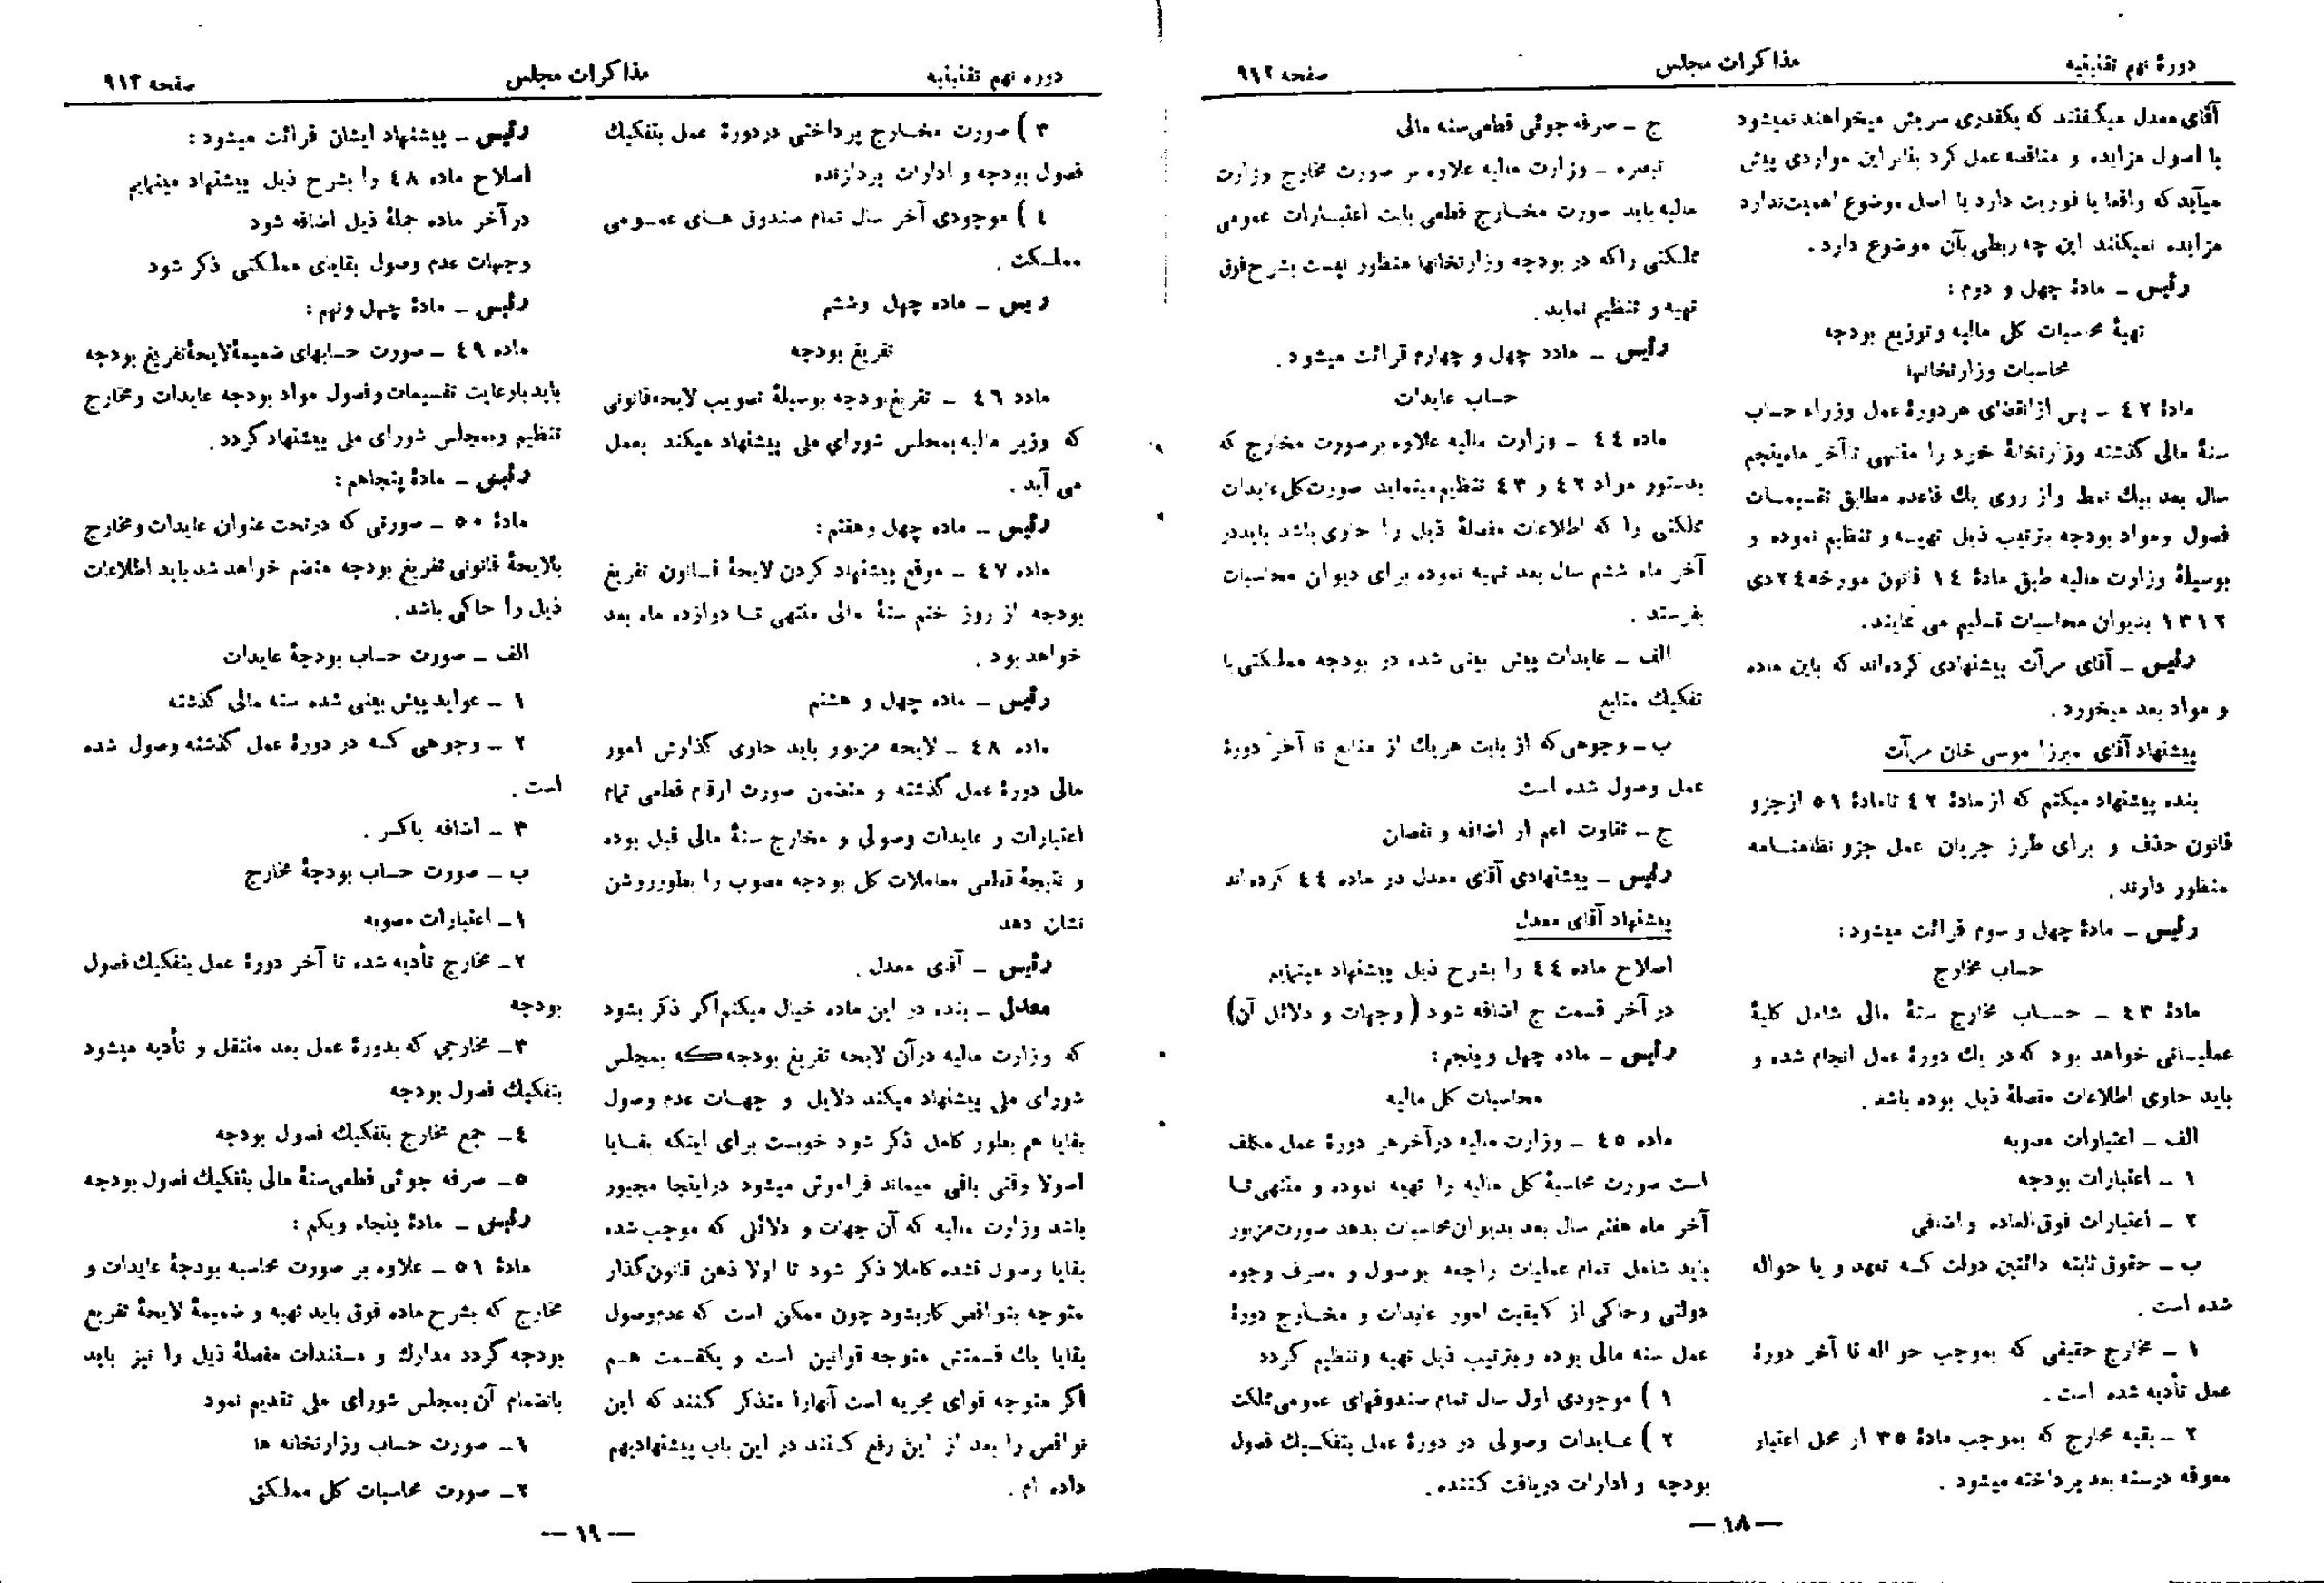 دورهٔ نهم تقنینیه
مذاکرات مجلس
صفحه ۹۱۲
آقای معدل میگفتند که یکقدری سریش میخواهند نمیشود
با اصول مزایده و مناقصه عمل کرد بنابراین مواردی پیش
میآید که واقعا یا فوریت دارد یا اصل موضوع اهمیت ندارد
مزایده نمیکنند این چه ربطی بآن موضوع دارد.
رئیس ـ مادهٔ چهل و دوم:
تهیهٔ محاسبات کل مالیه و توزیع بودجه
محاسبات وزارتخانها
مادهٔ ۴۲ ـ پس از انقضای هر دورهٔ عمل وزراء حساب
سنهٔ مالی گذشته وزارتخانهٔ خود را منتهی تا آخر ماه پنجم
سال بعد بیك نمط و از روی یك قاعده مطابق تقسیمات
فصول و مواد بودجه بترتیب ذیل تهیه و تنظیم نموده و
بوسیلهٔ وزارت مالیه طبق مادهٔ ۱۴ قانون مورخه ۲۴ دی
۱۳۱۲ بدیوان محاسبات تسلیم می نمایند.
رئیس ـ آقای مرآت پیشنهادی کرده‌اند که باین ماده
و مواد بعد میخورد.
پیشنهاد آقای میرزا موسی خان مرآت
بنده پیشنهاد میکنم که از مادهٔ ۴۲ تا مادهٔ ۵۱ از جزو
قانون حذف و برای طرز جریان عمل جزو نظامنامه
منظور دارند.
رئیس ـ مادهٔ چهل و سوم قرائت میشود:
حساب مخارج
مادهٔ ۴۳ ـ حساب مخارج سنهٔ مالی شامل کلیهٔ
عملیاتی خواهد بود که در یك دورهٔ عمل انجام شده و
باید حاوی اطلاعات مفصلهٔ ذیل بوده باشد.
الف ـ اعتبارات مصوبه
۱ ـ اعتبارات بودجه
۲ ـ اعتبارات فوق العاده و اضافی
ب ـ حقوق ثابته دائنین دولت که تعهد و یا حواله
شده است.
۱ ـ مخارج حقیقی که بموجب حواله تا آخر دورهٔ
عمل تأدیه شده است.
۲ ـ بقیه مخارج که بموجب مادهٔ ۳۵ از محل اعتبار
معوقه در سنه بعد پرداخته میشود.
ج ـ صرفه جوئی قطعی سنه مالی
تبصره ـ وزارت مالیه علاوه بر صورت مخارج وزارت
مالیه باید صورت مخارج قطعی بابت اعتبارات عمومی
مملکتی را که در بودجه وزارتخانها منظور نیست بشرح فوق
تهیه و تنظیم نماید.
رئیس ـ ماده چهل و چهارم قرائت میشود.
حساب عایدات
ماده ۴۴ ـ وزارت مالیه علاوه بر صورت مخارج که
بدستور مواد ۴۲ و ۴۳ تنظیم مینماید صورت کل عایدات
مملکتی را که اطلاعات مفصلهٔ ذیل را حاوی باشد باید در
آخر ماه ششم سال بعد تهیه نموده برای دیوان محاسبات
بفرستد.
الف ـ عایدات پیش بینی شده در بودجه مملکتی با
تفکیك منابع
ب ـ وجوهی که از بابت هر یك از منابع تا آخر دورهٔ
عمل وصول شده است
ج ـ تفاوت اعم از اضافه و نقصان
رئیس ـ پیشنهادی آقای معدل در ماده ۴۴ کرده‌اند
پیشنهاد آقای معدل
اصلاح ماده ۴۴ را بشرح ذیل پیشنهاد مینمایم
در آخر قسمت ج اضافه شود (وجهات و دلائل آن)
رئیس ـ ماده چهل و پنجم:
محاسبات کل مالیه
ماده ۴۵ ـ وزارت مالیه در آخر هر دورهٔ عمل مکلف
است صورت محاسبهٔ کل مالیه را تهیه نموده و منتهی تا
آخر ماه هفتم سال بعد بدیوان محاسبات بدهد صورت مزبور
باید شامل تمام عملیات راجعه بوصول و مصرف وجوه
دولتی و حاکی از کیفیت امور عایدات و مخارج دورهٔ
عمل سنه مالی بوده و بترتیب ذیل تهیه و تنظیم گردد
۱) موجودی اول سال تمام صندوقهای عمومی مملکت
۲) عایدات وصولی در دورهٔ عمل بتفکیك فصول
بودجه و ادارات دریافت کننده.
— ۱۸ —
دوره نهم تقنینیه
مذاکرات مجلس
صفحه ۹۱۳
۳) صورت مخارج پرداختی در دورهٔ عمل بتفکیك
فصول بودجه و ادارات پردازنده
۴) موجودی آخر سال تمام صندوق های عمومی
مملکت.
رئیس ـ ماده چهل و ششم
تفریغ بودجه
ماده ۴۶ ـ تفریغ بودجه بوسیلهٔ تصویب لایحه قانونی
که وزیر مالیه بمجلس شورای ملی پیشنهاد میکند بعمل
می آید.
رئیس ـ ماده چهل و هفتم:
ماده ۴۷ ـ موقع پیشنهاد کردن لایحهٔ قانون تفریغ
بودجه از روز ختم سنهٔ مالی منتهی تا دوازده ماه بعد
خواهد بود.
رئیس ـ ماده چهل و هشتم
ماده ۴۸ ـ لایحه مزبور باید حاوی گذارش امور
مالی دورهٔ عمل گذشته و متضمن صورت ارقام قطعی تمام
اعتبارات و عایدات وصولی و مخارج سنهٔ مالی قبل بوده
و نتیجهٔ قطعی معاملات کل بودجه مصوب را بطور روشن
نشان دهد
رئیس ـ آقای معدل.
معدل ـ بنده در این ماده خیال میکنم اگر ذکر بشود
که وزارت مالیه در آن لایحه تفریغ بودجه که بمجلس
شورای ملی پیشنهاد میکند دلایل و جهات عدم وصول
بقایا هم بطور کامل ذکر شود خوبست برای اینکه بقایا
اصولا وقتی باقی میماند فراموش میشود در اینجا مجبور
باشد وزارت مالیه که آن جهات و دلائلی که موجب شده
بقایا وصول نشده کاملا ذکر شود تا اولا ذهن قانون گذار
متوجه بنواقص کار بشود چون ممکن است که عدم وصول
بقایا یك قسمتش متوجه قوانین است و یکقسمت هم
اگر متوجه قوای مجریه است آنهارا متذکر کنند که این
نواقص را بعد از این رفع کنند در این باب پیشنهادیهم
داده ام.
رئیس ـ پیشنهاد ایشان قرائت میشود:
اصلاح ماده ۴۸ را بشرح ذیل پیشنهاد مینمایم
در آخر ماده جملهٔ ذیل اضافه شود
وجهات عدم وصول بقایای مملکتی ذکر شود
رئیس ـ مادهٔ چهل و نهم:
ماده ۴۹ ـ صورت حسابهای ضمیمهٔ لایحهٔ تفریغ بودجه
باید بارعایت تقسیمات و فصول مواد بودجه عایدات و مخارج
تنظیم و بمجلس شورای ملی پیشنهاد گردد.
رئیس ـ مادهٔ پنجاهم:
مادهٔ ۵۰ ـ صورتی که در تحت عنوان عایدات و مخارج
بالایحهٔ قانونی تفریغ بودجه منضم خواهد شد باید اطلاعات
ذیل را حاکی باشد.
الف ـ صورت حساب بودجهٔ عایدات
۱ ـ عواید پیش بینی شده سنه مالی گذشته
۲ ـ وجوهی که در دورهٔ عمل گذشته وصول شده
است.
۳ ـ اضافه یا کسر.
ب ـ صورت حساب بودجهٔ مخارج
۱ـ اعتبارات مصوبه
۲ـ مخارج تأدیه شده تا آخر دورهٔ عمل بتفکیك فصول
بودجه
۳ـ مخارجی که بدورهٔ عمل بعد منتقل و تأدیه میشود
بتفکیك فصول بودجه
۴ـ جمع مخارج بتفکیك فصول بودجه
۵ـ صرفه جوئی قطعی سنهٔ مالی بتفکیك فصول بودجه
رئیس ـ مادهٔ پنجاه ویکم:
مادهٔ ۵۱ ـ علاوه بر صورت محاسبه بودجهٔ عایدات و
مخارج که بشرح ماده فوق باید تهیه و ضمیمهٔ لایحهٔ تفریغ
بودجه گردد مدارك و مستندات مفصلهٔ ذیل را نیز باید
بانضمام آن بمجلس شورای ملی تقدیم نمود
۱ـ صورت حساب وزارتخانه ها
۲ـ صورت محاسبات کل مملکتی
— ۱۹ —